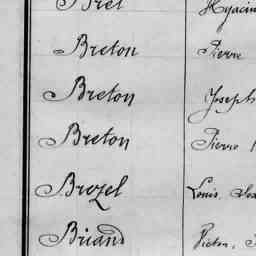 Bret Hyacin
Breton Pierre
Breton Joseph
Breton Pierre
Brozel Louis,
Briand Victor,